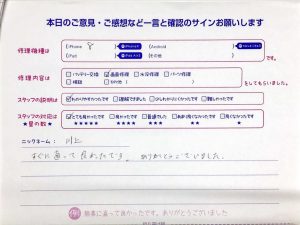 本日のご意見・ご感想など一言と確認のサインお願いします
修理機種は
iPhone 8
Android
iPad
iPod
その他
です。
修理内容は
バッテリー交換 画面修理 水没修理 パーツ修理
その他
をしてもらいました。
スタッフの説明は
わかりやすかったです 理解できました 少しわかりにくかったです 難しかったです
スタッフの対応は
とても良かったです 良かったです 普通でした あまり良くなかったです 良くなかったです
★星の数★
★★★★★ ★★★★ ★★★ ★★ ★
ニックネーム: 川上
すぐに直って良かったです。ありがとうございました。
無事に直って良かったです。ありがとうございました